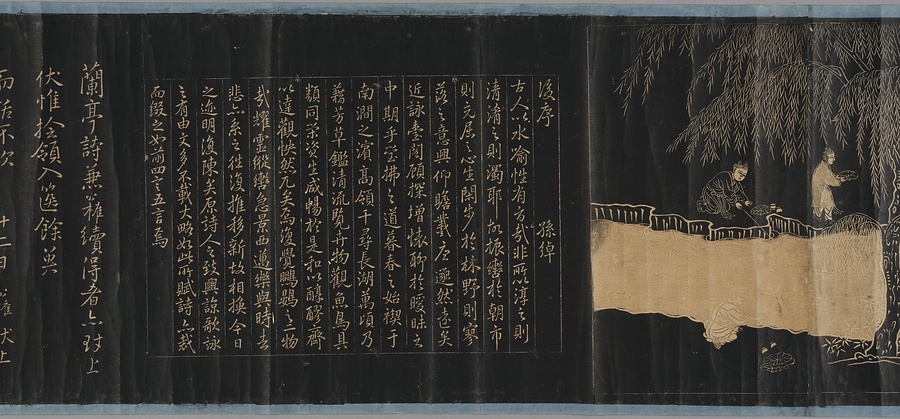 後序 孫綽
古人以水喻性有旨哉非所以渟之則
清淆之則濁耶故振轡於朝市
則充屈之心生閑步於林野則寥
落之意興仰瞻羲唐邈然遠矣
近詠臺閣顧探增懷聊於曖昧之
中期乎瑩拂之道暮春之始禊于
南澗之濱高嶺千尋長湖萬頃乃
藉芳草鑑清流覽卉物觀魚鳥具
類同榮資生咸暢於是和以醇醪齊
以達觀怏然兀矣焉復覺鵬鷃之二物
哉耀靈縱轡急景西邁樂與時去
悲亦系之往復推移新故相換今日
之迹明復陳矣原詩人之致興諒歌詠
之有由文多不載大略如此所賦詩亦裁
而綴之如前四五言焉
蘭亭詩兼續得者亦上
伏惟捡領入餘
不次 十二日 上